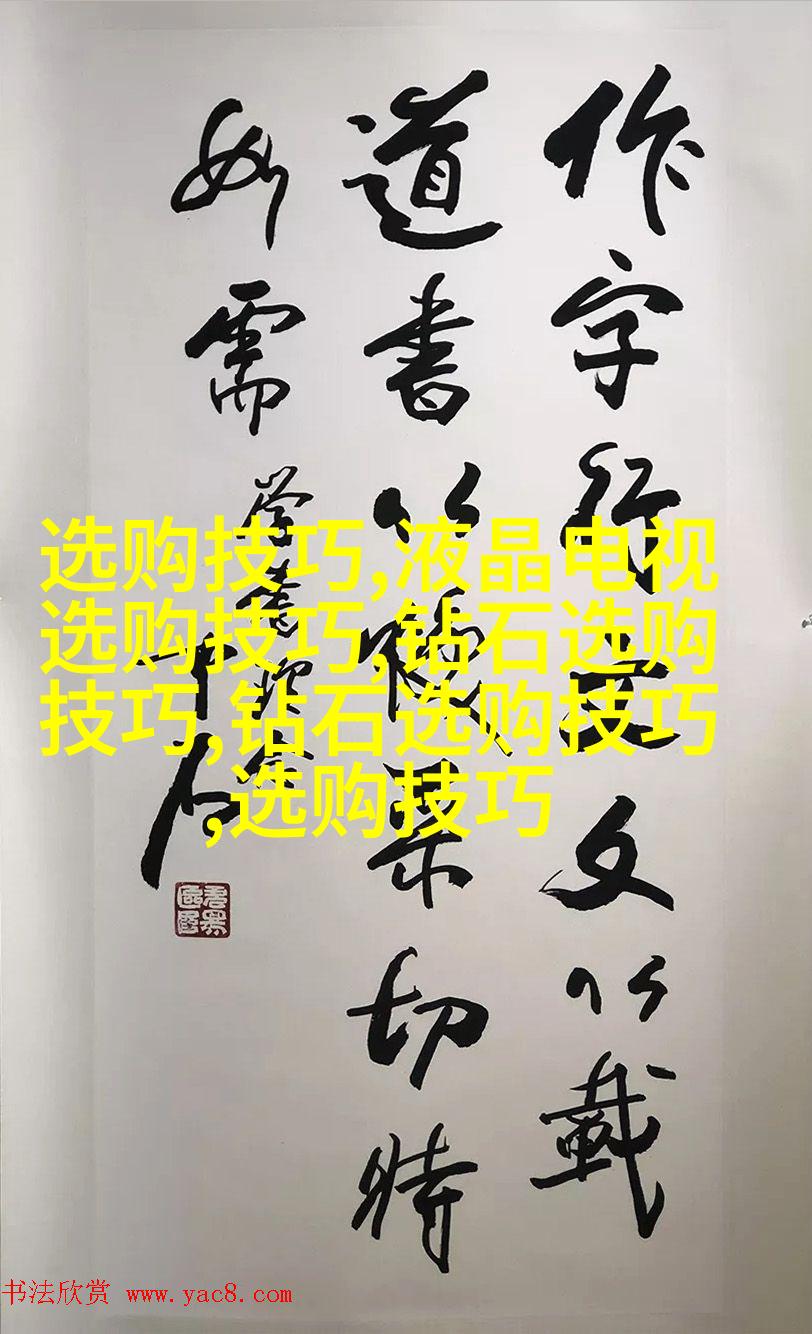 作字行文以載
道書以切時
如需
选购技巧,液晶电视
选购技巧,钻石选购
技巧,钻石选购技巧
,选购技巧
书法欣赏 www.yac8.com